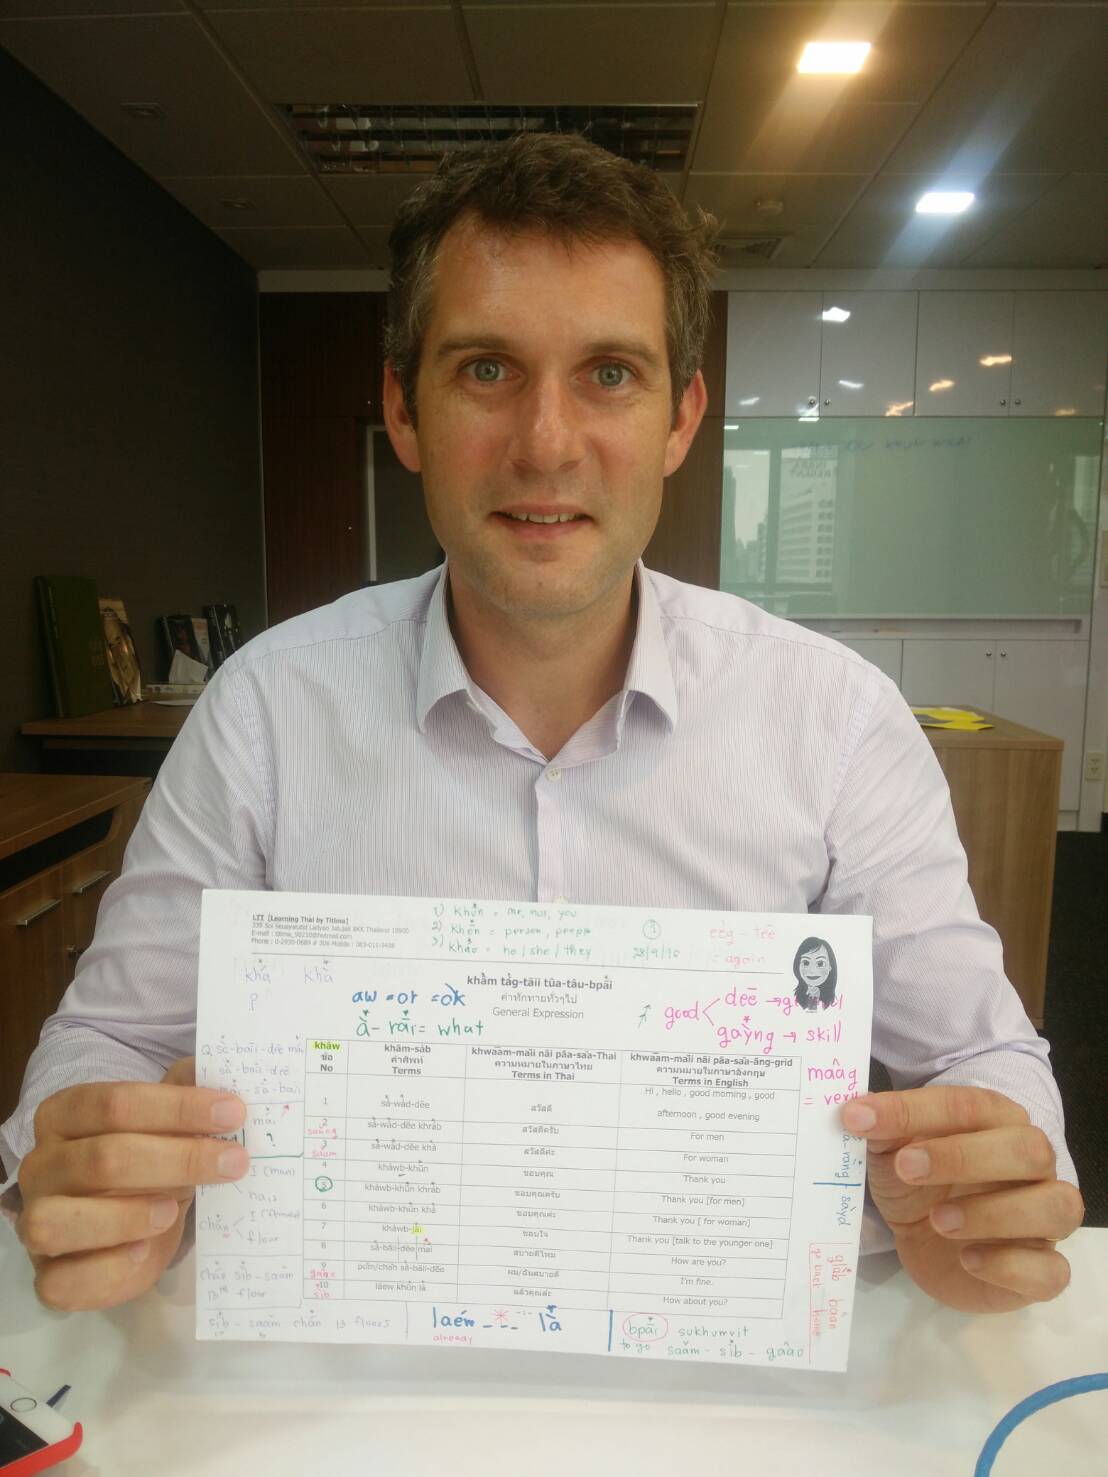 LTT [Learning Thai by Titima]
339 Soi Seuayaiutid Ladyao Jatujak BKK Thailand 10900
E-mail : titima_90210@hotmail.com
1) khun = mr, mrs, you
2) khon = person, people
3) khao = he / she / they
1
28/9/16
eeg - tee
again
khá khà
?
khàm tág-tāii tûa-tāu-bpāi
คำทักทายทั่วๆไป
General Expression
aw = or = ok
à - rāi = what
good
dee → general
gàyng → skill
mâag
= very
khâw
ข้อ
No
khām-sàb
คำศัพท์
Terms
khwaām-maīi nāi pāa-saa-Thai
ความหมายในภาษาไทย
Terms in Thai
khwaām-maīi nāi pāa-saa-āng-grìd
ความหมายในภาษาอังกฤษ
Terms in English
1 sà-wàd-dēe สวัสดี Hi , hello , good morning , good afternoon , good evening
2 sà-wàd-dēe khráb สวัสดีครับ For men
saāng
3 sà-wàd-dēe khà สวัสดีค่ะ For woman
saam
4 khàwb-khūn ขอบคุณ Thank you
5 khàwb-khūn khráb ขอบคุณครับ Thank you [for men]
6 khàwb-khūn khà ขอบคุณค่ะ Thank you [ for woman]
7 khàwb-jāi ขอบใจ Thank you [talk to the younger one]
8 sà-bāii-dēe mái สบายดีไหม How are you?
9 pǒm/chán sà-bāii-dēe ผม/ฉันสบายดี I'm fine.
gâao
10 láew khūn là แล้วคุณล่ะ How about you?
sìb
Q sà-baīi-dēe mái
Y sà-baīi-dēe
mâi-sà-baīi
mái
?
I (man)
hair
chán
I (female)
floor
chán sìb - saām
13th floor
sìb - saām chán 13 floors
10
laéw - - - là
already
bpāi sukhumvit
to go saām - sìb - gâao
sàyd
glàb bâan
go back home